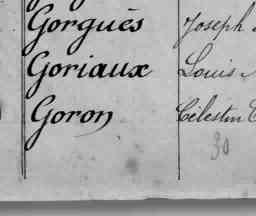 Gorguès Joseph
Goriaux Louis
Goron Célestin
30